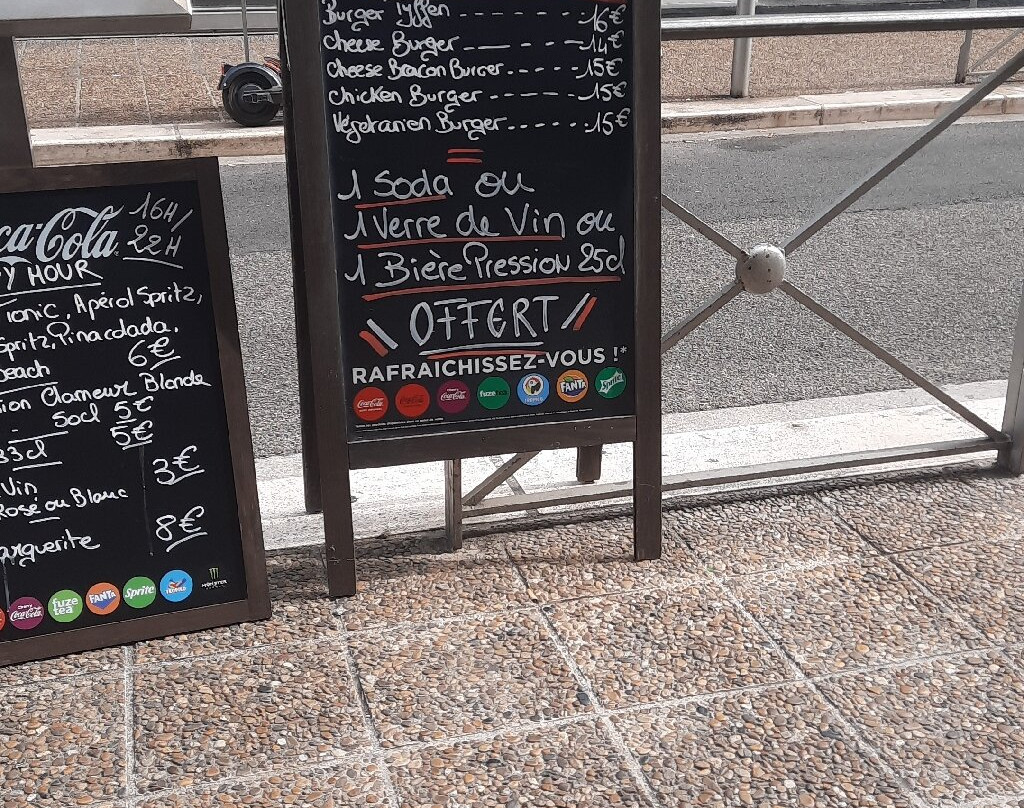 Burger Tyffen ------ 16€
Cheese Burger ------ 14€
Cheese Bacon Burger ------ 15€
Chicken Burger ------ 15€
Végétarien Burger ------ 15€
=
1 Soda ou
1 Verre de Vin ou
1 Bière Pression 25cl
OFFERT
RAFRAICHISSEZ-VOUS !*
Coca-Cola Coca-Cola Coca-Cola fuze tea TROPICO FANTA Sprite
ca-Cola 16H/
22H
Y HOUR
Tonic, Apérol Spritz,
Spritz, Pinacolada,
beach 6€
ion Clameur Blonde
- 50cl 5€
33cl 5€
Vin 3€
Rosé ou Blanc
arguerite 8€
Coca-Cola fuze tea FANTA Sprite TROPICO MONSTER